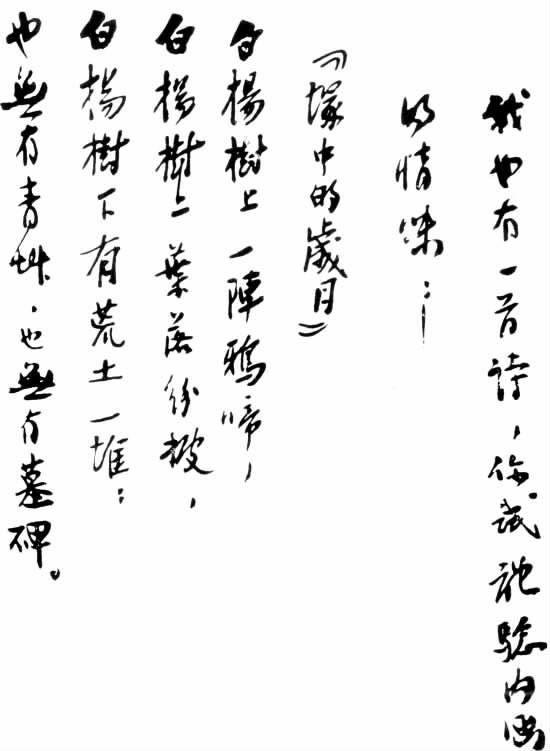 我也有一首詩，你試體驗內涵
的情味：—
《塚中的歲月》
白楊樹上一陣鴉啼，
白楊樹上葉落紛披，
白楊樹下有荒土一堆：
也無有青艸，也無有墓碑。